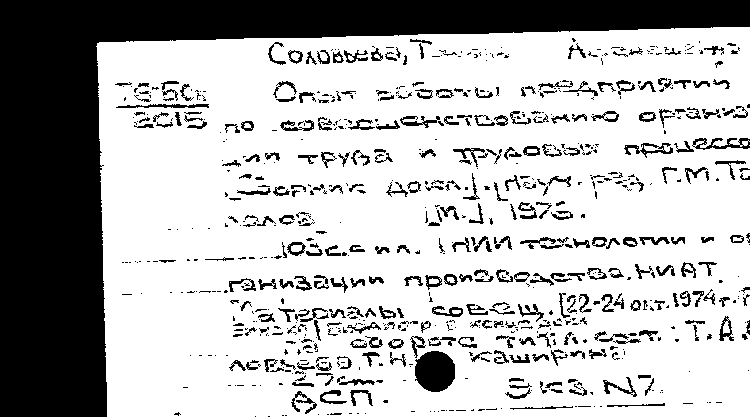 Соловьева, Т
76-50к Опыт работы предприятий
2015 по совершенствованию организа
ции труда и трудовых процессо
Сборник докл.]. [Науч. ред. Г.М. То
полов [М.], 1975.
103 с. с ил. (НИИ технологии и ор
ганизации производства. НИАТ.
Материалы совещ. [22-24 окт. 1974 г.
Библиогр. в конце
На обороте тит. л. сост.: Т.А.
ловьева, Т.Н. Каширина
27 cm.
АСП. Экз. N7